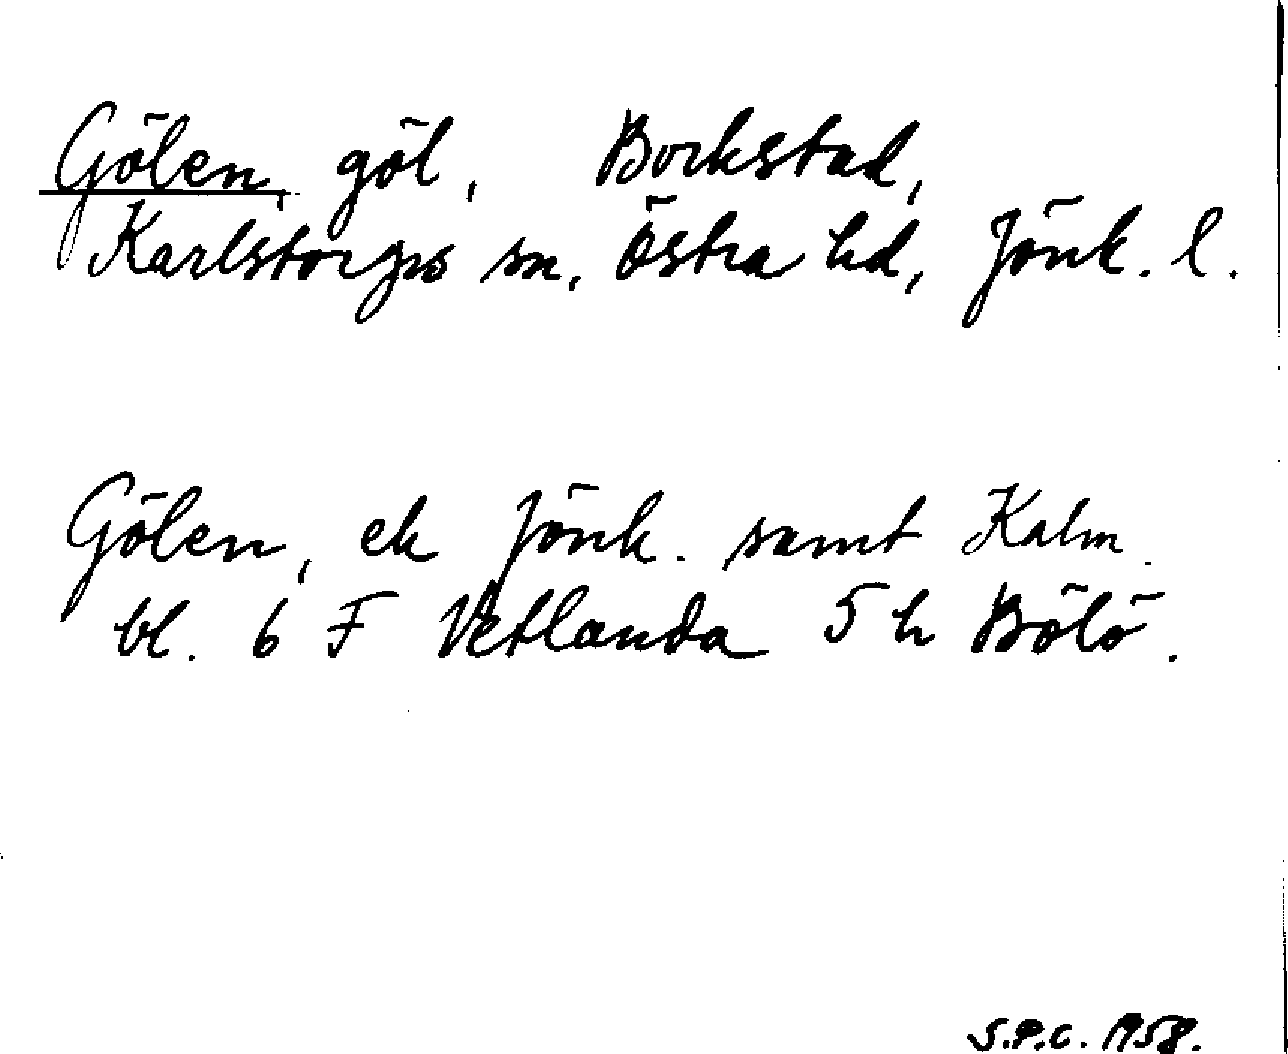 Gölen, göl, Borkstad,
Karlstorps sn, Östra hd, Jönk. l.
Gölen, ek Jönk. samt Kalm.
bl. 6 F Vetlanda 5 h Bölö.
S.P.C. 1958.